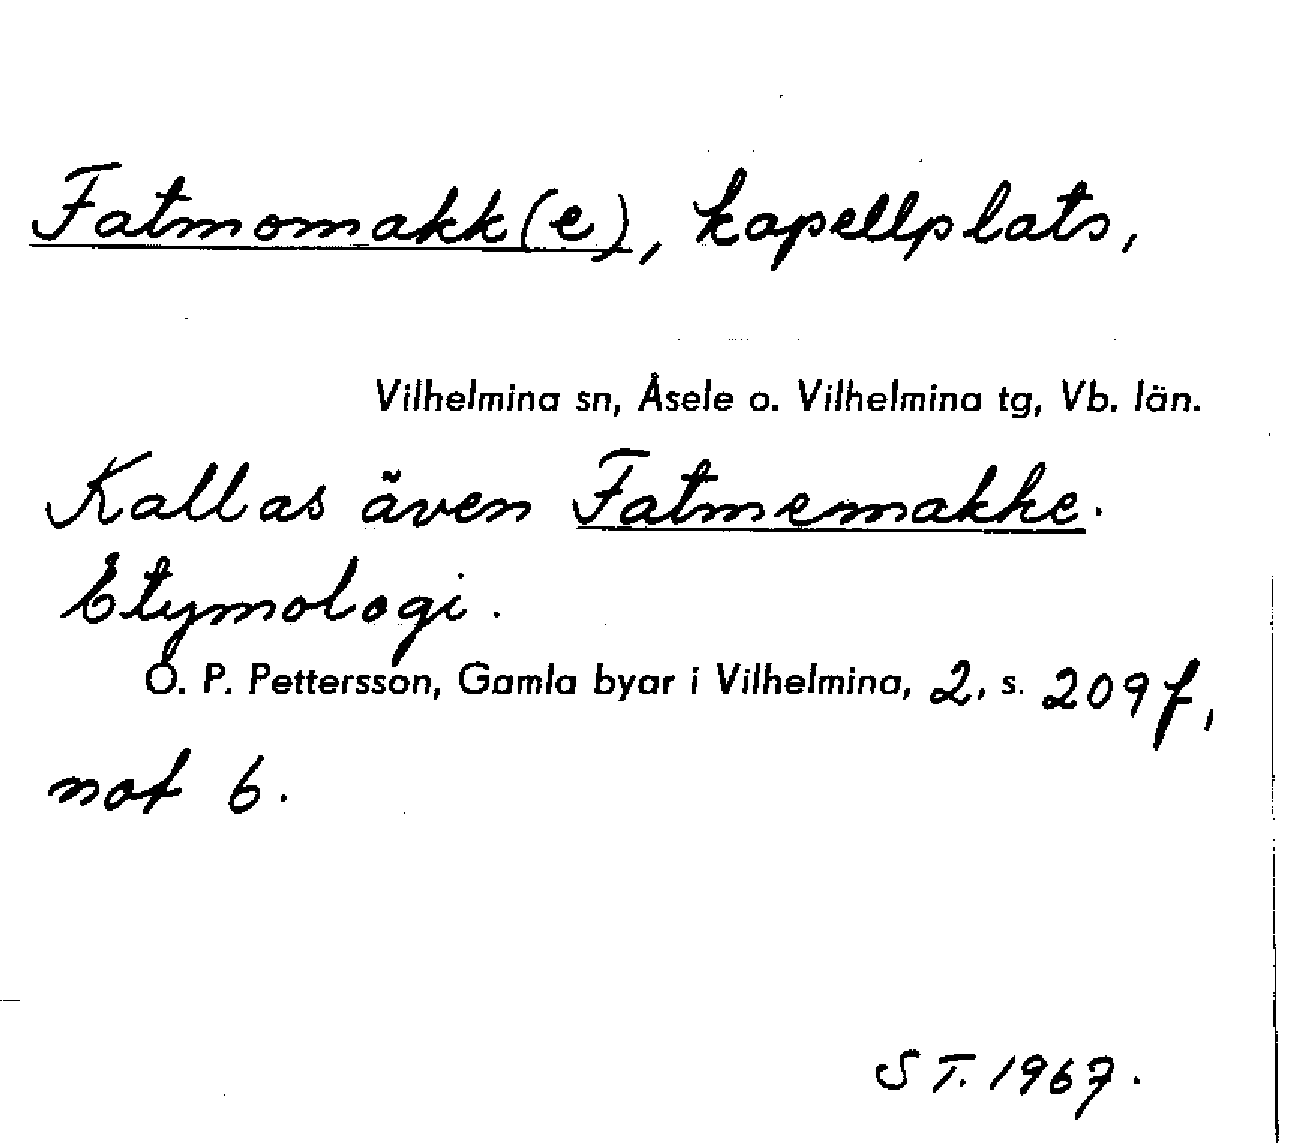 Fatmomakk(e), kapellplats,
Vilhelmina sn, Åsele o. Vilhelmina tg, Vb. län.
Kallas även Fatmemakke.
Etymologi.
O. P. Pettersson, Gamla byar i Vilhelmina, 2, s. 209f,
not 6.
ST. 1967.